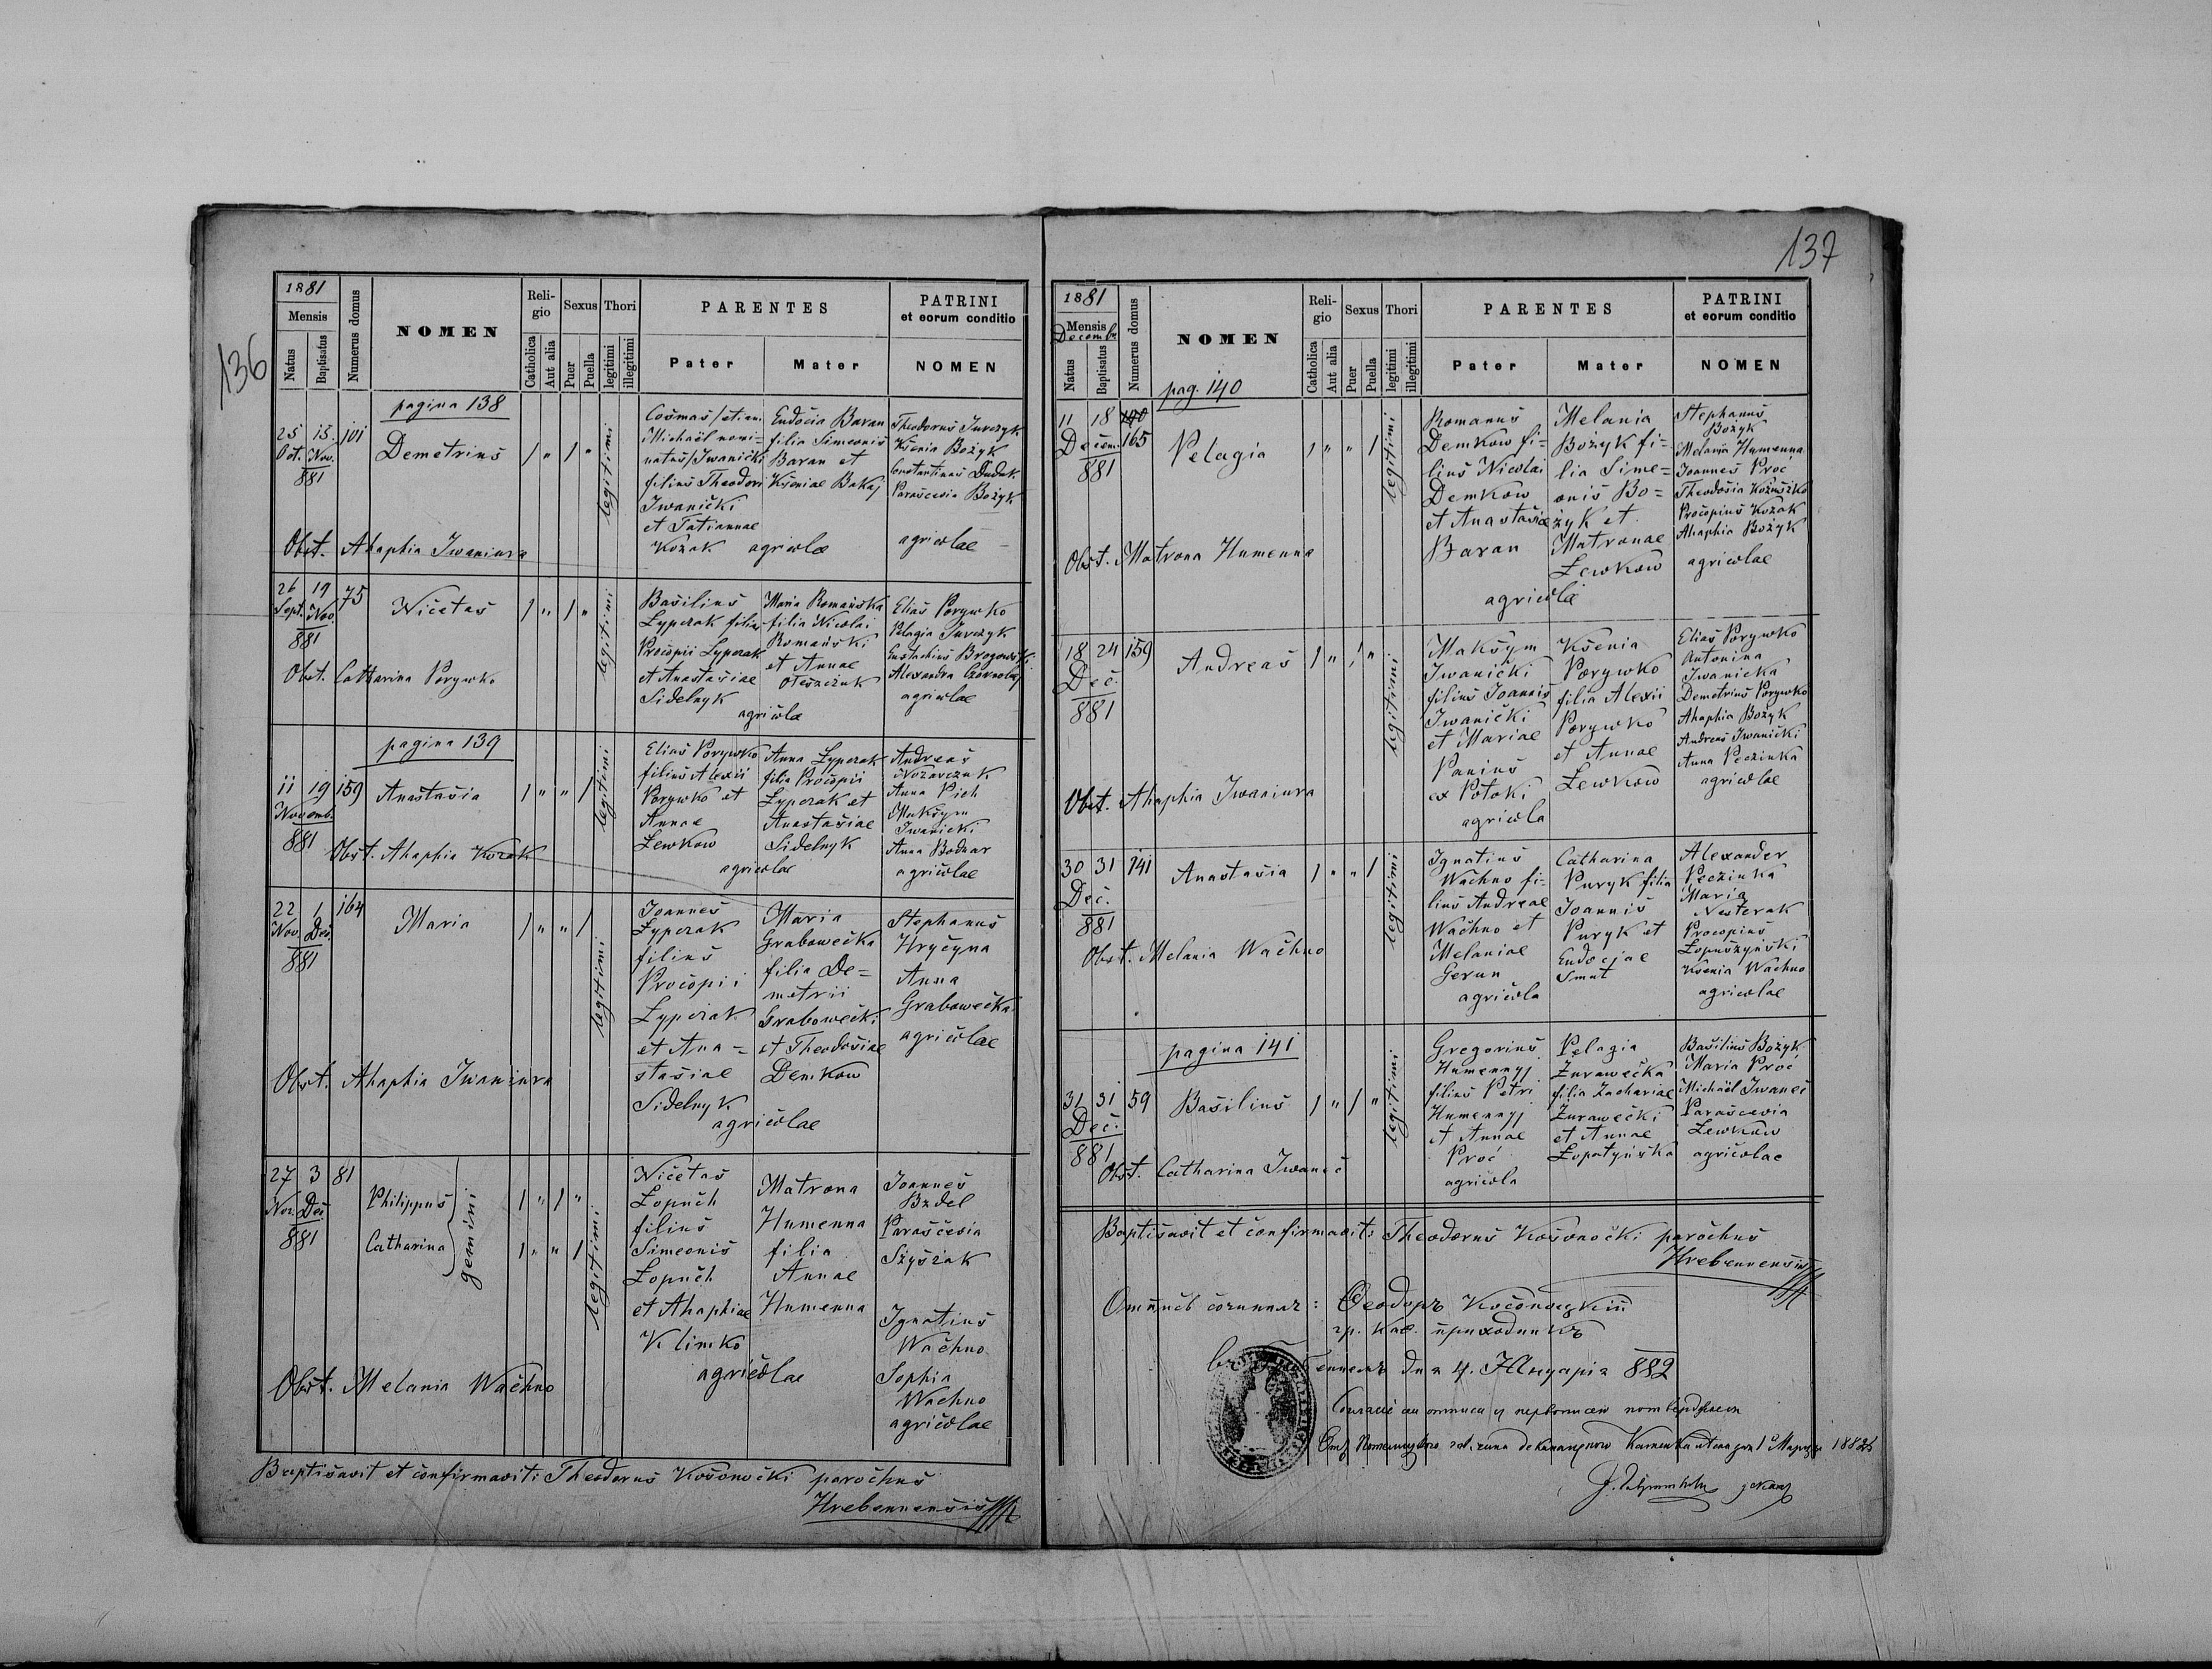 136
1881
Mensis
Natus
Baptisatus
Numerus domus
NOMEN
Reli-
gio
Catholica
Aut alia
Sexus
Puer
Puella
Thori
legitimi
illegitimi
PARENTES
Pater
Mater
PATRINI
et eorum conditio
NOMEN
pagina 138
25 13 101
Oct. Nov.
881
Demetrius
1 " 1 "
legitimi
Cosmas /etiam
Michaël nomi=
natus/ Iwanicki
filius Theodori
Iwanicki
et Tatiannae
Kozak
Eudocia Baran
filia Simeonis
Baran et
Kseniae Bakaj
agricolae
Theodorus Jurczyk
Ksenia Bożyk
Constantinus Dudak
Parascevia Bożyk
agricolae
Obst. Ahaphia Iwaniura
26 19 75
Sept. Nov.
881
Nicetas
1 " 1 "
legitimi
Basilius
Łyperak filius
Procopii Łyperak
et Anastasiae
Sidelnyk
Maria Romańska
filia Nicolai
Romański
et Annae
Oleszczuk
agricolae
Elias Porywko
Pelagia Jurczyk
Eustachius Brogowski
Alexandra Czornobaj
agricolae
Obst. Catharina Porywko
pagina 139
11 19 159
Novemb.
881
Anastasia
1 " " 1
legitimi
Elias Porywko
filius Alexii
Porywko et
Annae
Lewkow
Anna Łyperak
filia Procopii
Łyperak et
Anastasiae
Sidelnyk
agricolae
Andreas
Nozarczuk
Anna Pich
Maksym
Iwanicki
Anna Bodnar
agricolae
Obst. Ahaphia Kozak
22 1 164
Nov. Dec.
881
Maria
1 " " 1
legitimi
Joannes
Łyperak
filius
Procopii
Łyperak
et Ana=
stasiae
Sidelnyk
Maria
Grabowecka
filia De=
metrii
Grabowecki
et Theodosiae
Demkow
agricolae
Stephanus
Hrycyna
Anna
Grabowecka
agricolae
Obst. Ahaphia Iwaniura
27 3 81
Nov. Dec.
881
Philippus
Catharina
gemini
1 " 1 "
1 " " 1
legitimi
Nicetas
Łopuch
filius
Simeonis
Łopuch
et Ahaphiae
Klimko
Matrona
Humenna
filia
Annae
Humenna
agricolae
Joannes
Bzdel
Parascevia
Ignatius
Wachno
Sophia
Wachno
agricolae
Obst. Melania Wachno
Baptisavit et confirmavit: Theodorus Kosonocki parochus
Hrebennensis
137
1881
Mensis
Decembr
Natus
Baptisatus
Numerus domus
NOMEN
Reli-
gio
Catholica
Aut alia
Sexus
Puer
Puella
Thori
legitimi
illegitimi
PARENTES
Pater
Mater
PATRINI
et eorum conditio
NOMEN
pag. 140
11 18 165
Decem.
881
Pelagia
1 " " 1
legitimi
Romanus
Demkow fi=
lius Nicolai
Demkow
et Anastasiae
Baran
Melania
Bożyk fi=
lia Sime=
onis Bo=
żyk et
Matronae
Lewkow
agricolae
Stephanus
Bożyk
Melania Humenna
Joannes Proć
Theodosia Kożuszko
Procopius Kozak
Ahaphia Bożyk
agricolae
Obst. Matrona Humenna
18 24 159
Dec.
881
Andreas
1 " 1 "
legitimi
Maksym
Iwanicki
filius Joannis
Iwanicki
et Mariae
Panius
ex Potoki
agricola
Ksenia
Porywko
filia Alexii
Porywko
et Annae
Lewkow
Elias Porywko
Antonina
Iwanicka
Demetrius Porywko
Ahaphia Bożyk
Andreas Iwanicki
Anna Peczinka
agricolae
Obst. Ahaphia Iwaniura
30 31 141
Dec.
881
Anastasia
1 " " 1
legitimi
Ignatius
Wachno fi-
lius Andreae
Wachno et
Melaniae
Gerun
agricola
Catharina
Puryk filia
Joannis
Puryk et
Eudociae
Smut
Alexander
Peczinka
Maria
Nesterak
Procopius
Łopuszyński
Ksenia Wachno
agricolae
Obst. Melania Wachno
pagina 141
31 31 59
Dec.
881
Basilius
1 " 1 "
legitimi
Gregorius
Humennyj
filius Petri
Humennyj
et Annae
Proć
agricola
Pelagia
Żurawecka
filia Zachariae
Żurawecki
et Annae
Łopatyńska
Basilius Bożyk
Maria Proć
Michaël Iwaneć
Parascevia
Lewkow
agricolae
Obst. Catharina Iwaneć
Baptisavit et confirmavit: Theodorus Kosonocki parochus
Hrebennensis
Отписъ сочинилъ: Ѳеодоръ Косоноцкій
гр. каѳ. приходникъ
дня 4. Януарія 882